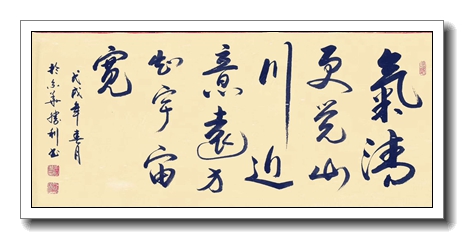 氣清
更觉山
川近
意遠方
知宇宙
寬
戊戌年春月
於京華勝利书